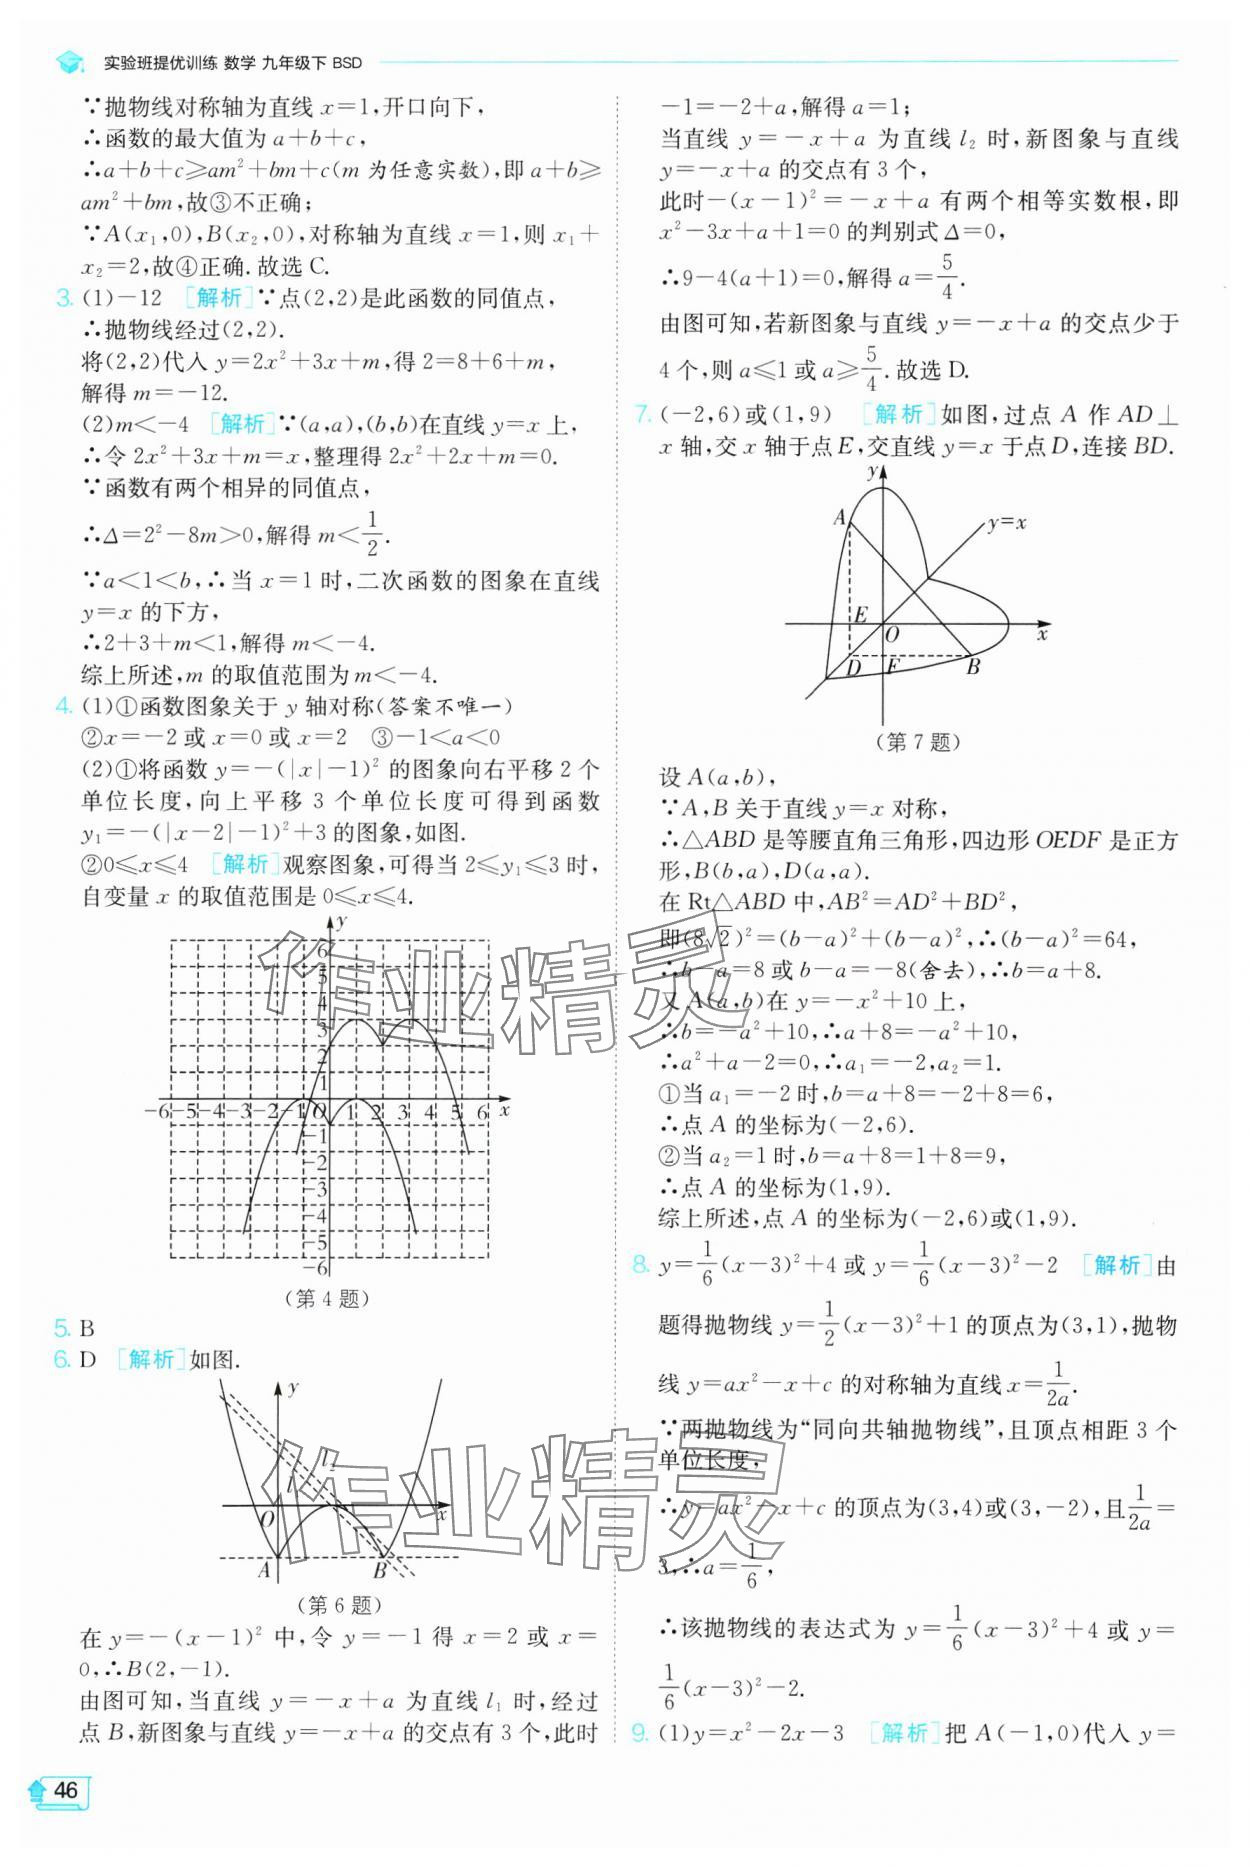 实验班提优训练 数学 九年级下 BSD
∵抛物线对称轴为直线 x=1,开口向下,
∴函数的最大值为 a+b+c,
∴a+b+c≥am²+bm+c(m 为任意实数),即 a+b≥
am²+bm,故③不正确;
∵A(x₁,0),B(x₂,0),对称轴为直线 x=1,则 x₁+
x₂=2,故④正确.故选 C.
3. (1)-12 [解析]∵点(2,2)是此函数的同值点,
∴抛物线经过(2,2).
将(2,2)代入 y=2x²+3x+m,得 2=8+6+m,
解得 m=-12.
(2)m<-4 [解析]∵(a,a),(b,b)在直线 y=x 上,
∴令 2x²+3x+m=x,整理得 2x²+2x+m=0.
∵函数有两个相异的同值点,
∴Δ=2²-8m>0,解得 m<1/2.
∵a<1<b,∴当 x=1 时,二次函数的图象在直线
y=x 的下方,
∴2+3+m<1,解得 m<-4.
综上所述,m 的取值范围为 m<-4.
4. (1)①函数图象关于 y 轴对称(答案不唯一)
②x=-2 或 x=0 或 x=2 ③-1<a<0
(2)①将函数 y=-(|x|-1)² 的图象向右平移 2 个
单位长度,向上平移 3 个单位长度可得到函数
y₁=-(|x-2|-1)²+3 的图象,如图.
②0≤x≤4 [解析]观察图象,可得当 2≤y₁≤3 时,
自变量 x 的取值范围是 0≤x≤4.
y
6
5
4
3
2
1
-6 -5 -4 -3 -2 -1 O 1 2 3 4 5 6 x
-1
-2
-3
-4
-5
-6
(第 4 题)
5. B
6. D [解析]如图.
y
l₂
l
O x
A B
(第 6 题)
在 y=-(x-1)² 中,令 y=-1 得 x=2 或 x=
0,∴B(2,-1).
由图可知,当直线 y=-x+a 为直线 l₁ 时,经过
点 B,新图象与直线 y=-x+a 的交点有 3 个,此时
-1=-2+a,解得 a=1;
当直线 y=-x+a 为直线 l₂ 时,新图象与直线
y=-x+a 的交点有 3 个,
此时-(x-1)²=-x+a 有两个相等实数根,即
x²-3x+a+1=0 的判别式 Δ=0,
∴9-4(a+1)=0,解得 a=5/4.
由图可知,若新图象与直线 y=-x+a 的交点少于
4 个,则 a≤1 或 a≥5/4.故选 D.
7. (-2,6)或(1,9) [解析]如图,过点 A 作 AD⊥
x 轴,交 x 轴于点 E,交直线 y=x 于点 D,连接 BD.
y
A y=x
E
O x
D F B
(第 7 题)
设 A(a,b),
∵A,B 关于直线 y=x 对称,
∴△ABD 是等腰直角三角形,四边形 OEDF 是正方
形,B(b,a),D(a,a).
在 Rt△ABD 中,AB²=AD²+BD²,
即(8√2)²=(b-a)²+(b-a)²,∴(b-a)²=64,
∴b-a=8 或 b-a=-8(舍去),∴b=a+8.
又 A(a,b)在 y=-x²+10 上,
∴b=-a²+10,∴a+8=-a²+10,
∴a²+a-2=0,∴a₁=-2,a₂=1.
①当 a₁=-2 时,b=a+8=-2+8=6,
∴点 A 的坐标为(-2,6).
②当 a₂=1 时,b=a+8=1+8=9,
∴点 A 的坐标为(1,9).
综上所述,点 A 的坐标为(-2,6)或(1,9).
8. y=1/6(x-3)²+4 或 y=1/6(x-3)²-2 [解析]由
题得抛物线 y=1/2(x-3)²+1 的顶点为(3,1),抛物
线 y=ax²-x+c 的对称轴为直线 x=1/2a.
∵两抛物线为“同向共轴抛物线”,且顶点相距 3 个
单位长度,
∴y=ax²-x+c 的顶点为(3,4)或(3,-2),且1/2a=
3,∴a=1/6,
∴该抛物线的表达式为 y=1/6(x-3)²+4 或 y=
1/6(x-3)²-2.
9. (1)y=x²-2x-3 [解析]把 A(-1,0)代入 y=
46
作业精灵
作业精灵